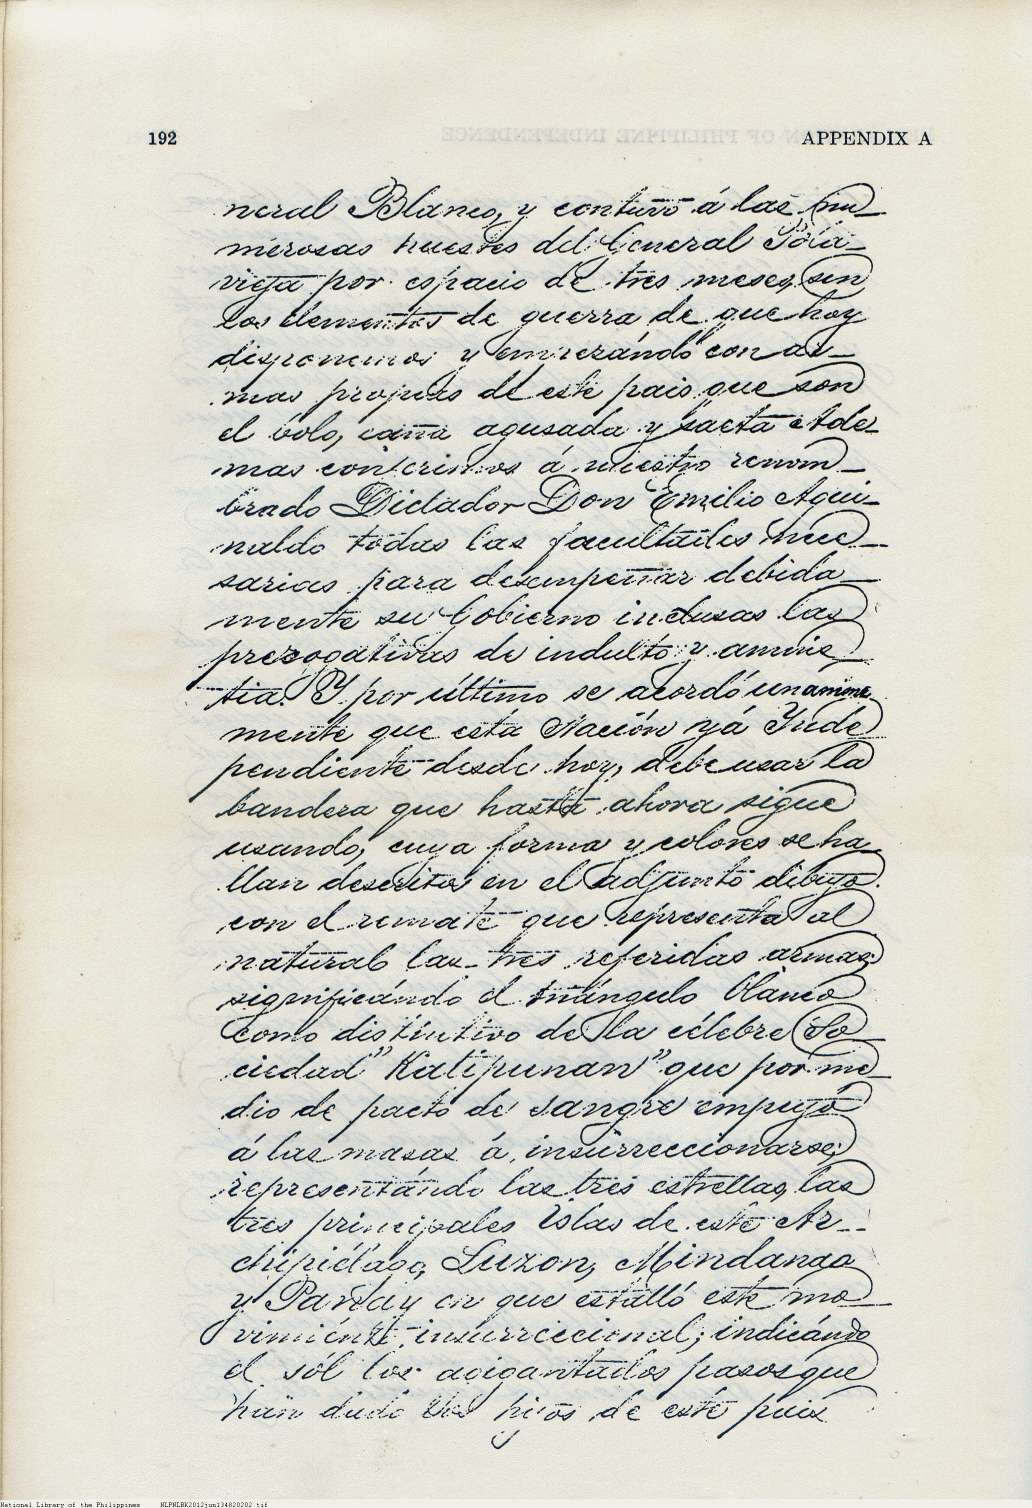 192 APPENDIX A
neral Blanco, y contuvo á las nu_
merosas huestes del General Póla_
vieja por espacio de tres meses, sin
los elementos de guerra de que hoy
disponemos y empezándo con ar_
mas propias de este pais que son
el bólo, caña agusada y saeta. Ade_
mas conferimos á nuestro renom_
brado Dictador Don Emilio Agui
naldo todas las facultades nece_
sarias para desempeñar debida_
mente su Gobierno inclusas las
prerogativas de indulto y amnis_
tia. Y por último se acordó unanime_
mente que esta Nación yá Ynde
pendiente desde hoy, debe usar la
bandera que hasta ahora sigue
usando, cuya forma y colores se ha_
llan descritos en el adjunto dibujo.
con el remate que representa al
natural las tres referidas armas;
significándo el triángulo blanco
como distintivo de la célebre So_
ciedad "Katipunan" que por me_
dio de pacto de sangre empujó
á las masas á insurreccionarse;
representándo las tres estrellas, las
tres principales Islas de este Ar_
chipiélago, Luzon, Mindanao
y Panay en que estalló este mo_
vimiénto insurreccional; indicándo
el sól los agigantados pasos que
han dado los hijos de este pais
National Library of the Philippines NLPNLBK2012jun134820202.tif